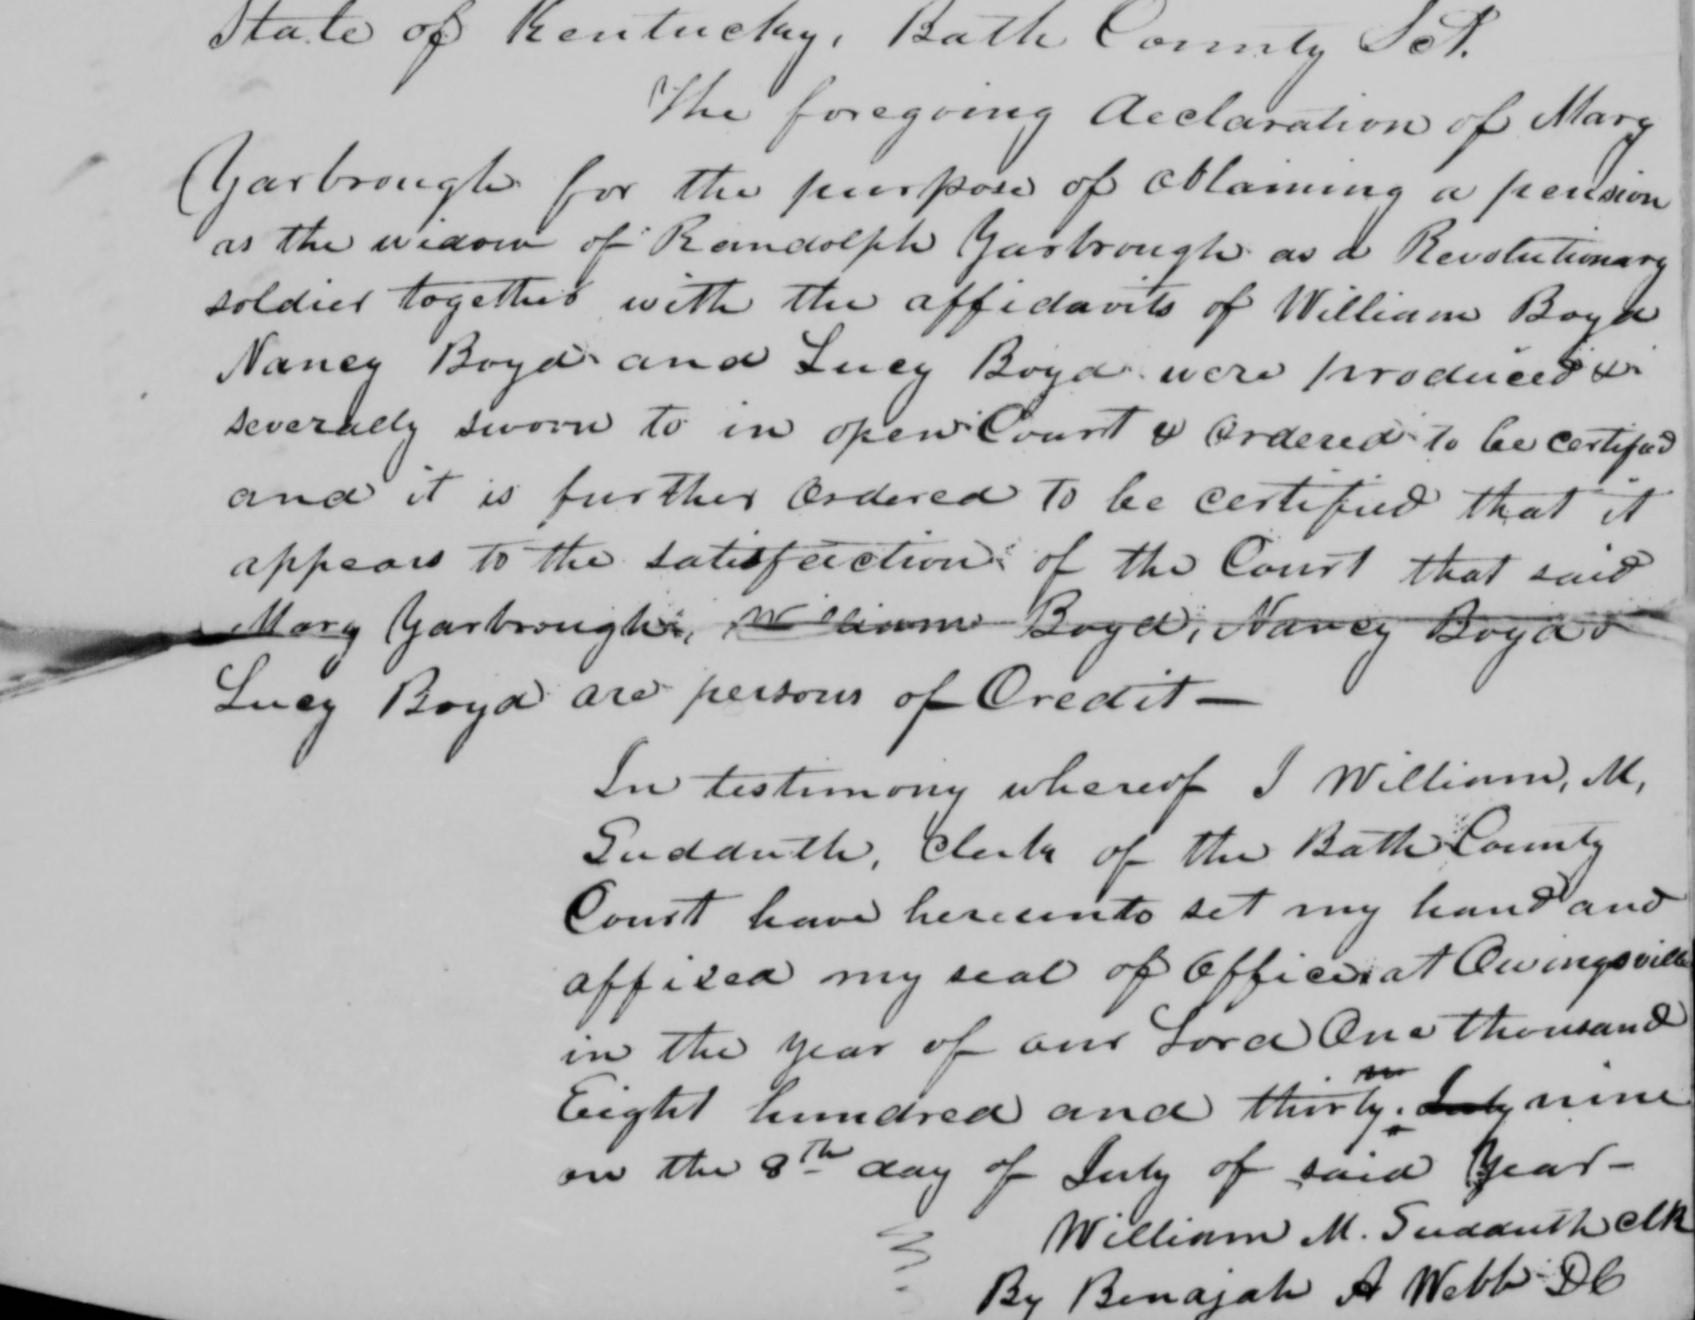 State of Kentucky, Bath County Sct.
The foregoing declaration of Mary
Yarbrough for the purpose of obtaining a pension
as the widow of Randolph Yarbrough as a Revolutionary
soldier together with the affidavits of William Boyd
Nancy Boyd and Lucy Boyd were produced &
severally sworn to in open Court & ordered to be certified
and it is further ordered to be certified that it
appears to the satisfaction of the Court that said
Mary Yarbrough, William Boyd, Nancy Boyd &
Lucy Boyd are persons of Credit —
In testimony whereof I William, M,
Sudduth, Clerk of the Bath County
Court have hereunto set my hand and
affixed my seal of office at Owingsville
in the year of our Lord One thousand
Eight hundred and thirty. July nine
on the 8th day of July of said Year —
William M. Sudduth clk
By Benajah A Webb DC